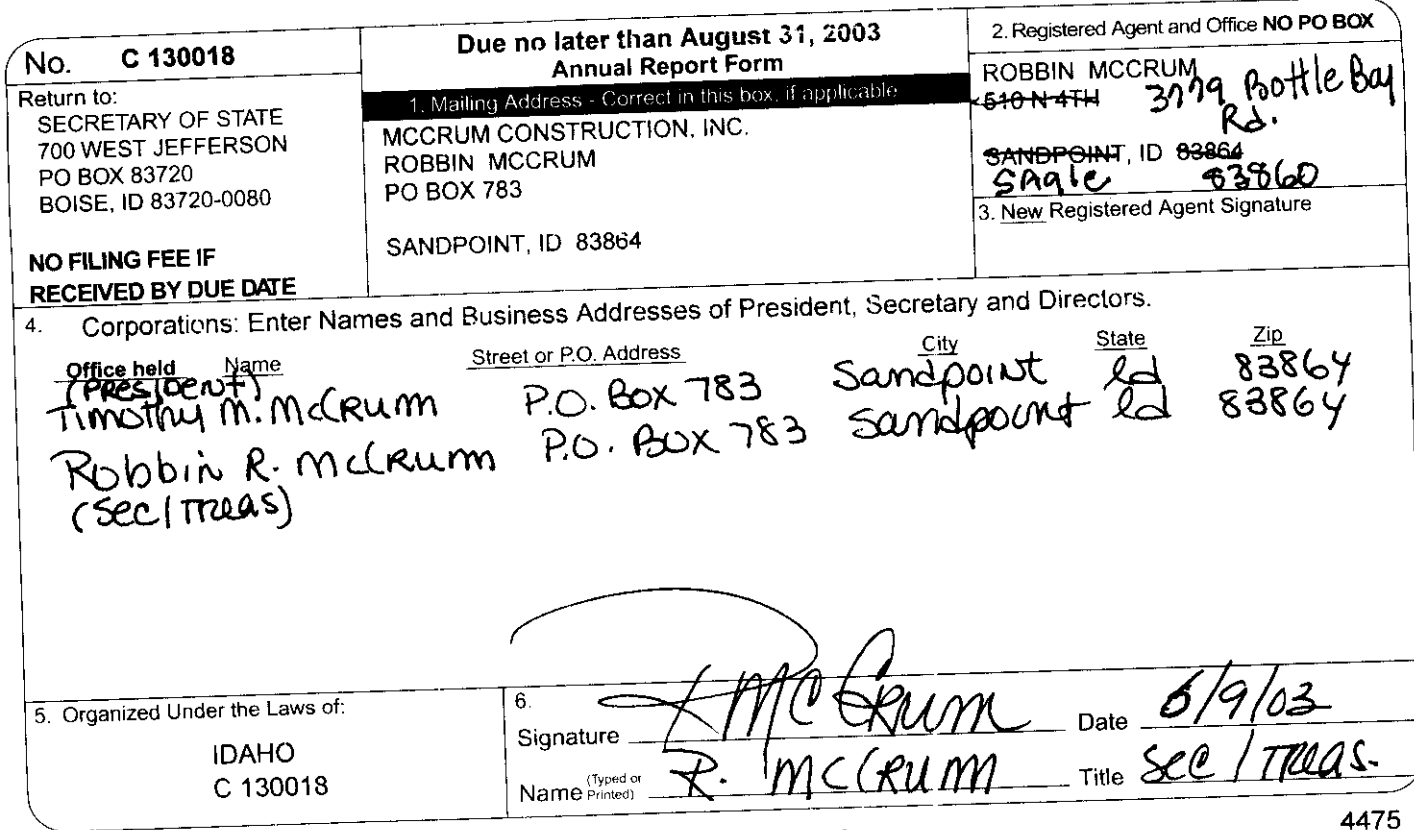 No. C 130018
Return to:
SECRETARY OF STATE
700 WEST JEFFERSON
PO BOX 83720
BOISE, ID 83720-0080
NO FILING FEE IF
RECEIVED BY DUE DATE
Due no later than August 31, 2003
Annual Report Form
1. Mailing Address - Correct in this box, if applicable
MCCRUM CONSTRUCTION, INC.
ROBBIN MCCRUM
PO BOX 783
SANDPOINT, ID 83864
2. Registered Agent and Office NO PO BOX
ROBBIN MCCRUM
510 N 4TH 3779 Bottle Bay
Rd.
SANDPOINT, ID 83864
SAgle 83860
3. New Registered Agent Signature
4. Corporations: Enter Names and Business Addresses of President, Secretary and Directors.
Office held Name Street or P.O. Address City State Zip
(PRESIDENT)
Timothy M. McCRUM P.O. BOX 783 Sandpoint Id 83864
Robbin R. McCRUM P.O. BOX 783 Sandpoint Id 83864
(Sec/Treas)
5. Organized Under the Laws of:
IDAHO
C 130018
6.
Signature McCrum Date 6/9/03
Name (Typed or Printed) R. McCRUM Title Sec / Treas.
4475